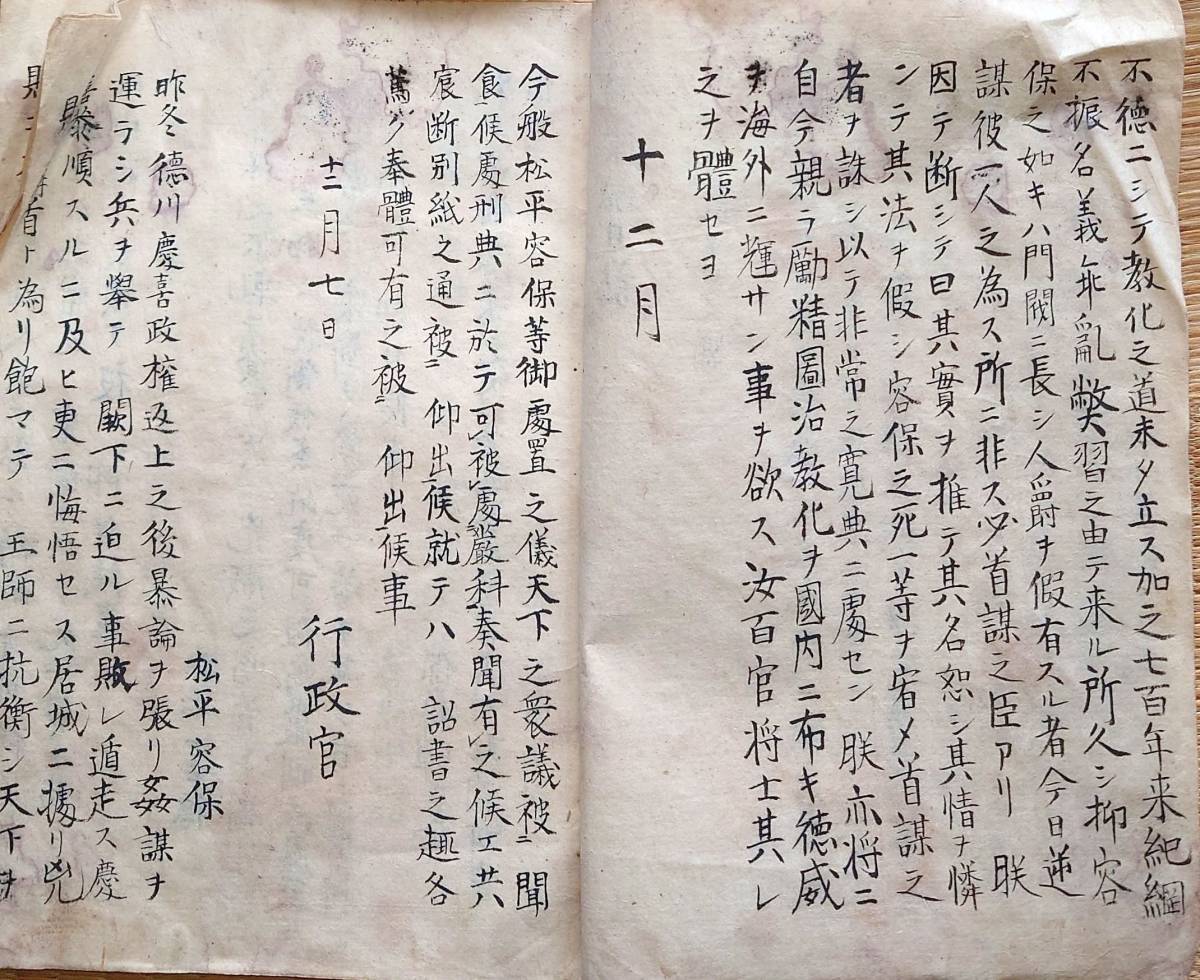 不徳ニシテ教化之道未タ立ス加之七百年来紀綱
不振名義乖亂弊習之由テ来ル所久シ抑容
保之如キハ門閥ニ長シ人爵ヲ假有スル者今日逆
謀彼一人之為ス所ニ非ス必首謀之臣アリ　朕
因テ断シテ曰其實ヲ推テ其名恕シ其情ヲ憐
ンテ其法ヲ假シ容保之死一等ヲ宥メ首謀之
者ヲ誅シ以テ非常之寛典ニ處セン　朕亦将ニ
自今親ラ勵精圖治教化ヲ國内ニ布キ徳威
ヲ海外ニ輝サン事ヲ欲ス汝百官将士其レ
之ヲ體セヨ
十二月
今般松平容保等御處置之儀天下之衆議被ニ聞
食候處刑典ニ於テ可被レ處嚴科奏聞有レ之候エ共
宸断別紙之通被ニ　仰出候就テハ　詔書之趣各
篤ク奉體可有之被ニ　仰出候事
十二月七日
行政官
松平容保
昨冬徳川慶喜政権返上之後暴論ヲ張リ姦謀ヲ
運ラシ兵ヲ擧テ闕下ニ迫ル事敗レ遁走ス慶
順スルニ及ヒ更ニ悔悟セス居城ニ據リ兇
首ト為リ飽マテ　王師ニ抗衡シ天下ヲ